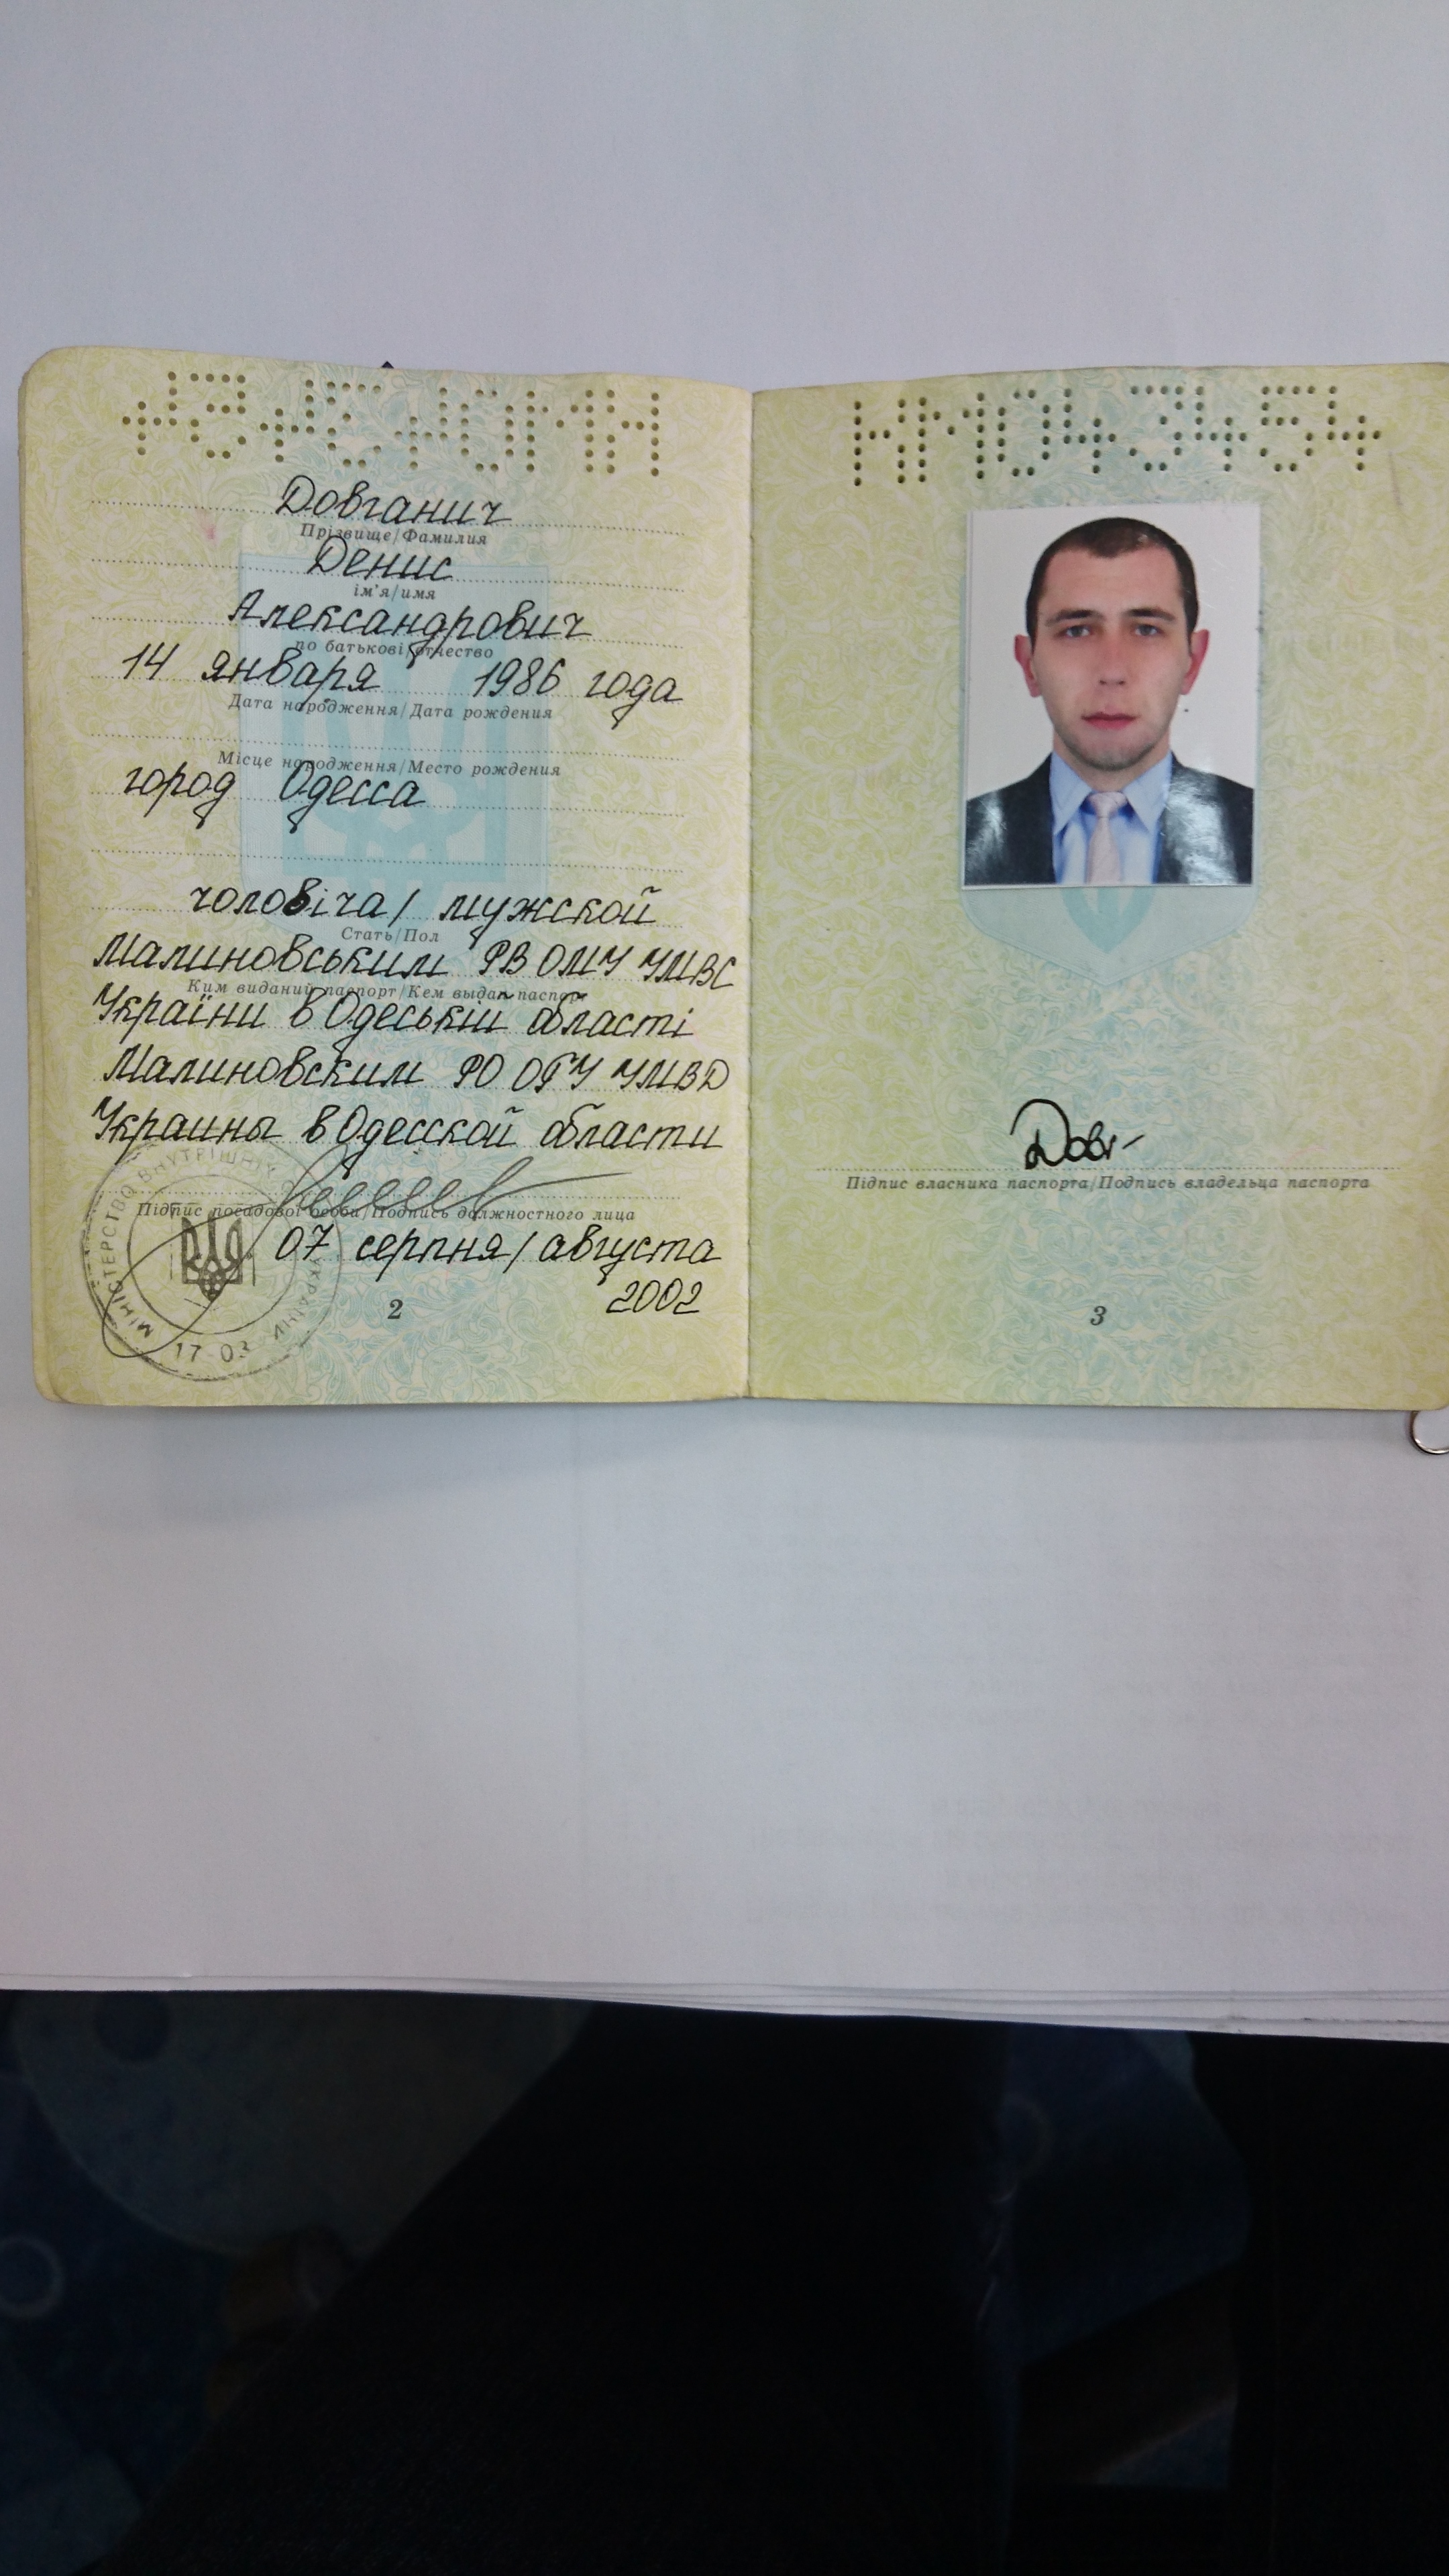 НМ043454
Довганич
Прізвище/Фамилия
Денис
ім'я/имя
Александрович
по батькові/отчество
14 января 1986 года
Дата народження/Дата рождения
Місце народження/Место рождения
город Одесса
чоловіча/мужской
Стать/Пол
Малиновським РВ ОМУ УМВС
Ким виданий паспорт/Кем выдан паспорт
України в Одеській області
Малиновским РО ОГУ УМВД
Украины в Одесской области
Підпис посадової особи/Подпись должностного лица
07 серпня/августа
2002
МІНІСТЕРСТВО ВНУТРІШНІХ УКРАЇНИ
17-03
2
НМ043454
Довг
Підпис власника паспорта/Подпись владельца паспорта
3